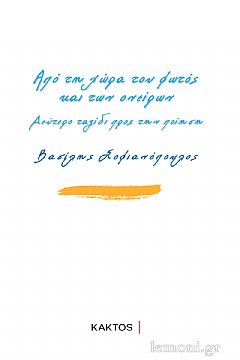 Από τη χώρα του φωτός
και των ονείρων
Δεύτερο ταξίδι προς την ποίηση
Βασίλης Σοφιανόπουλος
ΚΑΚΤΟΣ
lemoni.gr